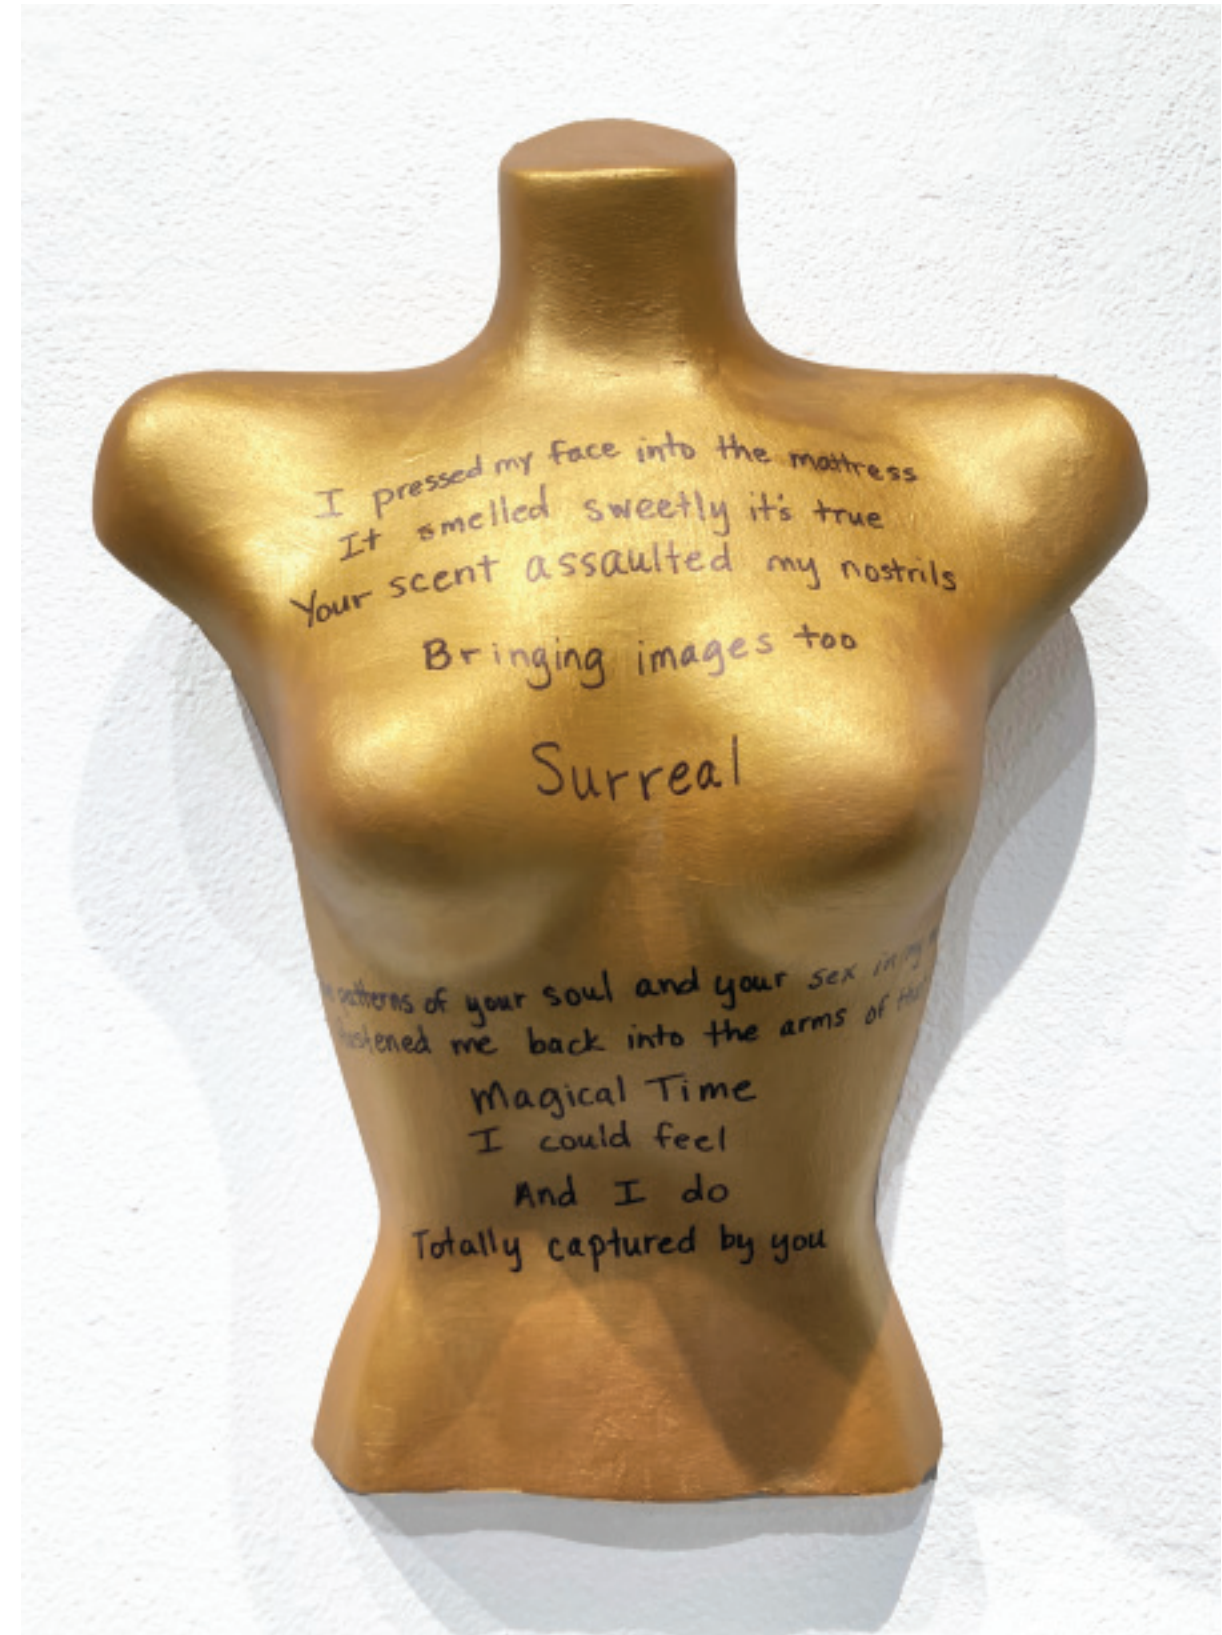 I pressed my face into the mattress
It smelled sweetly it's true
Your scent assaulted my nostrils
Bringing images too
Surreal
patterns of your soul and your sex in my
me back into the arms of
Magical Time
I could feel
And I do
Totally captured by you